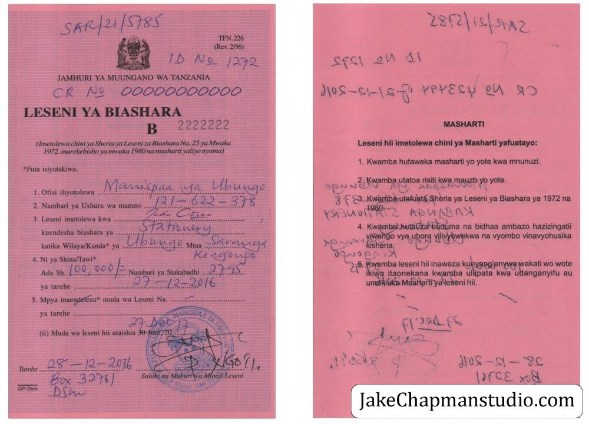 SAR/21/5785
TFN. 226
(Rev. 2/96)
ID No 1272
JAMHURI YA MUUNGANO WA TANZANIA
CR No 00000000000
LESENI YA BIASHARA
B 2222222
(Imetolewa chini ya Sheria ya Leseni za Biashara Na. 25 ya Mwaka
1972, marekebisho ya mwaka 1980 na masharti yaliyo nyuma)
*Futa isiyotakiwa.
1. Ofisi iliyotolewa Manispaa ya Ubungo
2. Nambari ya Ushuru wa mauzo 121-622-378
3 Leseni imetolewa kwa
kuendesha biashara ya Stationery
katika Wilaya/Kanda* ya Ubungo Mtaa
Kingongo
4. Ni ya Shina/Tawi*
Ada Sh. 100,000/= Nambari ya Stakabadhi 2795
ya tarehe 27-12-2016
5. Mpya inaendeleza* muda wa Leseni Na.
ya tarehe
27 Dec 17
(ii) Muda wa leseni hii utaishia 30 Juni, 20
Tarehe 28-12-2016
Box 32761
DSM
Sahihi na Muhuri wa Mtoaji Leseni
GP Dsm
SAR/21/5785
ID No 1272
CR No 423494 21-12-2016
MASHARTI
Leseni hii imetolewa chini ya Masharti yafuatayo:
1. Kwamba hutaweka masharti yo yote kwa mnunuzi.
2. Kwamba utatoa risiti kwa mauzo yo yote.
3. Kwamba utafuata Sheria ya Leseni ya Biashara ya 1972 na
1980.
4. Kwamba hutauza huduma na bidhaa ambazo hazizingatii
viwango vya ubora vilivyowekwa na vyombo vinavyohusika
kisheria.
5. Kwamba leseni hii inaweza kunyang'anywa wakati wo wote
ikiwa itaonekana kwamba ulipata kwa udanganyifu au
umekiuka Masharti ya leseni hii.
27 Dec 17
28-12-2016
Box 32761
JakeChapmanstudio.com